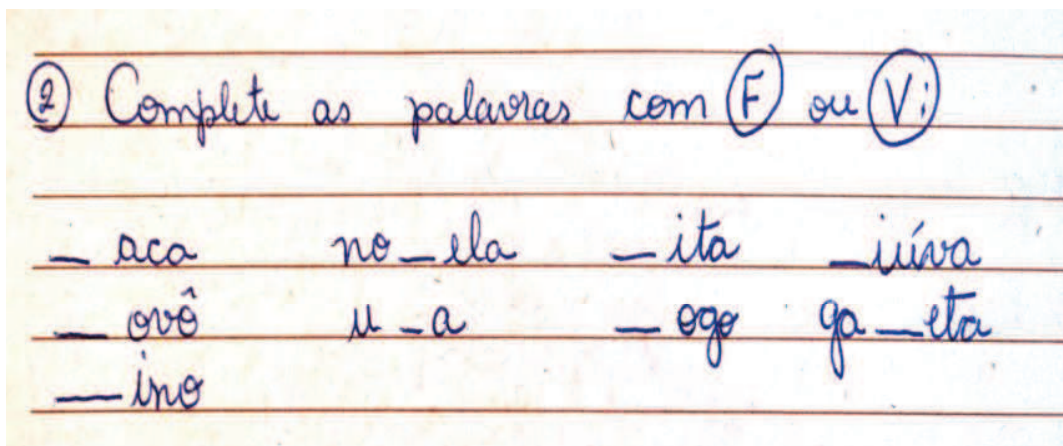 ② Complete as palavras com Ⓕ ou Ⓥ:
_ aca no_ela _ita _iúva
_ ovô u_a _ogo ga_eta
_ino